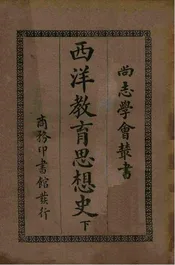 尚志學會叢書
西洋教育思想史
下
商務印書館發行